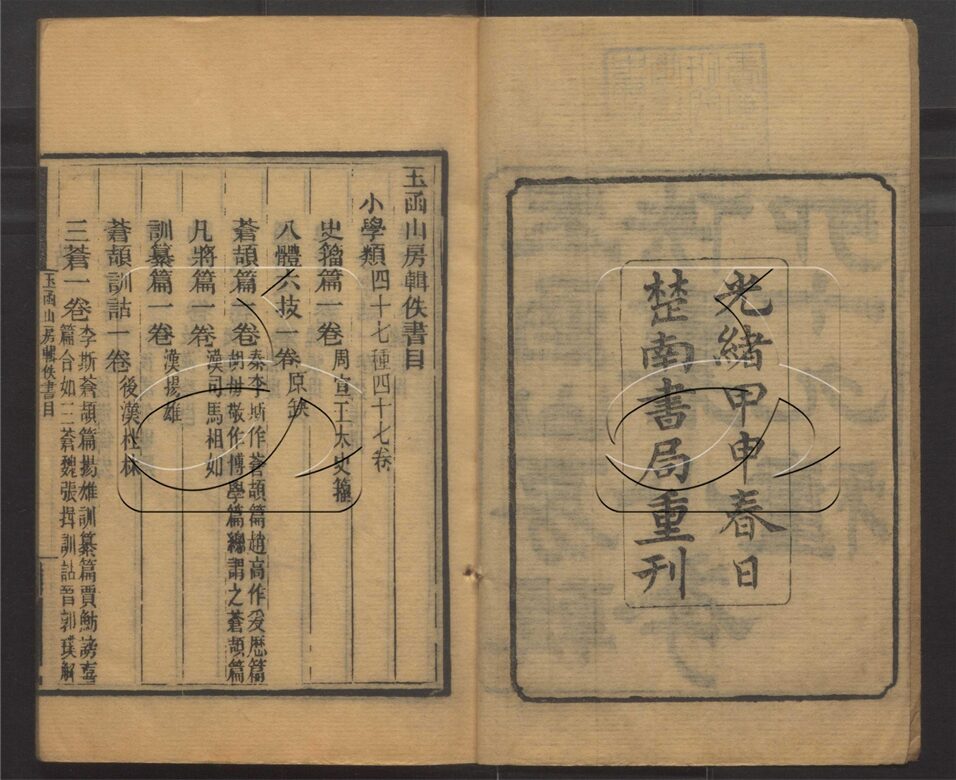 光緒甲申春日
楚南書局重刊
玉函山房輯佚書目
小學類四十七種四十七卷
史籀篇一卷周宣王太史籀
八體六技一卷原缺
蒼頡篇一卷秦李斯作蒼頡篇趙高作爰歷篇
胡毋敬作博學篇總謂之蒼頡篇
凡將篇一卷漢司馬相如
訓纂篇一卷漢揚雄
蒼頡訓詁一卷後漢杜林
三蒼一卷李斯蒼頡篇揚雄訓纂篇賈魴滂喜
篇合如三蒼魏張揖訓詁晉郭璞解
玉函山房輯佚書目